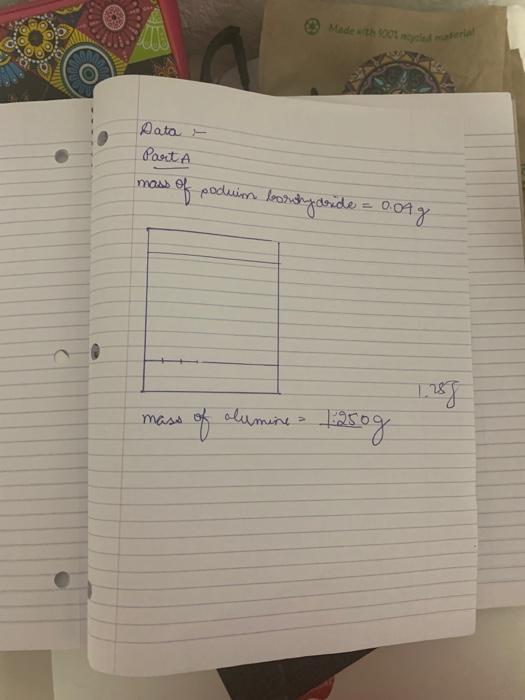 Made with 100% recycled material
Data :-
Part A
mass of soduim borohydride = 0.09 g
1.28g
mass of alumine = 1.250g